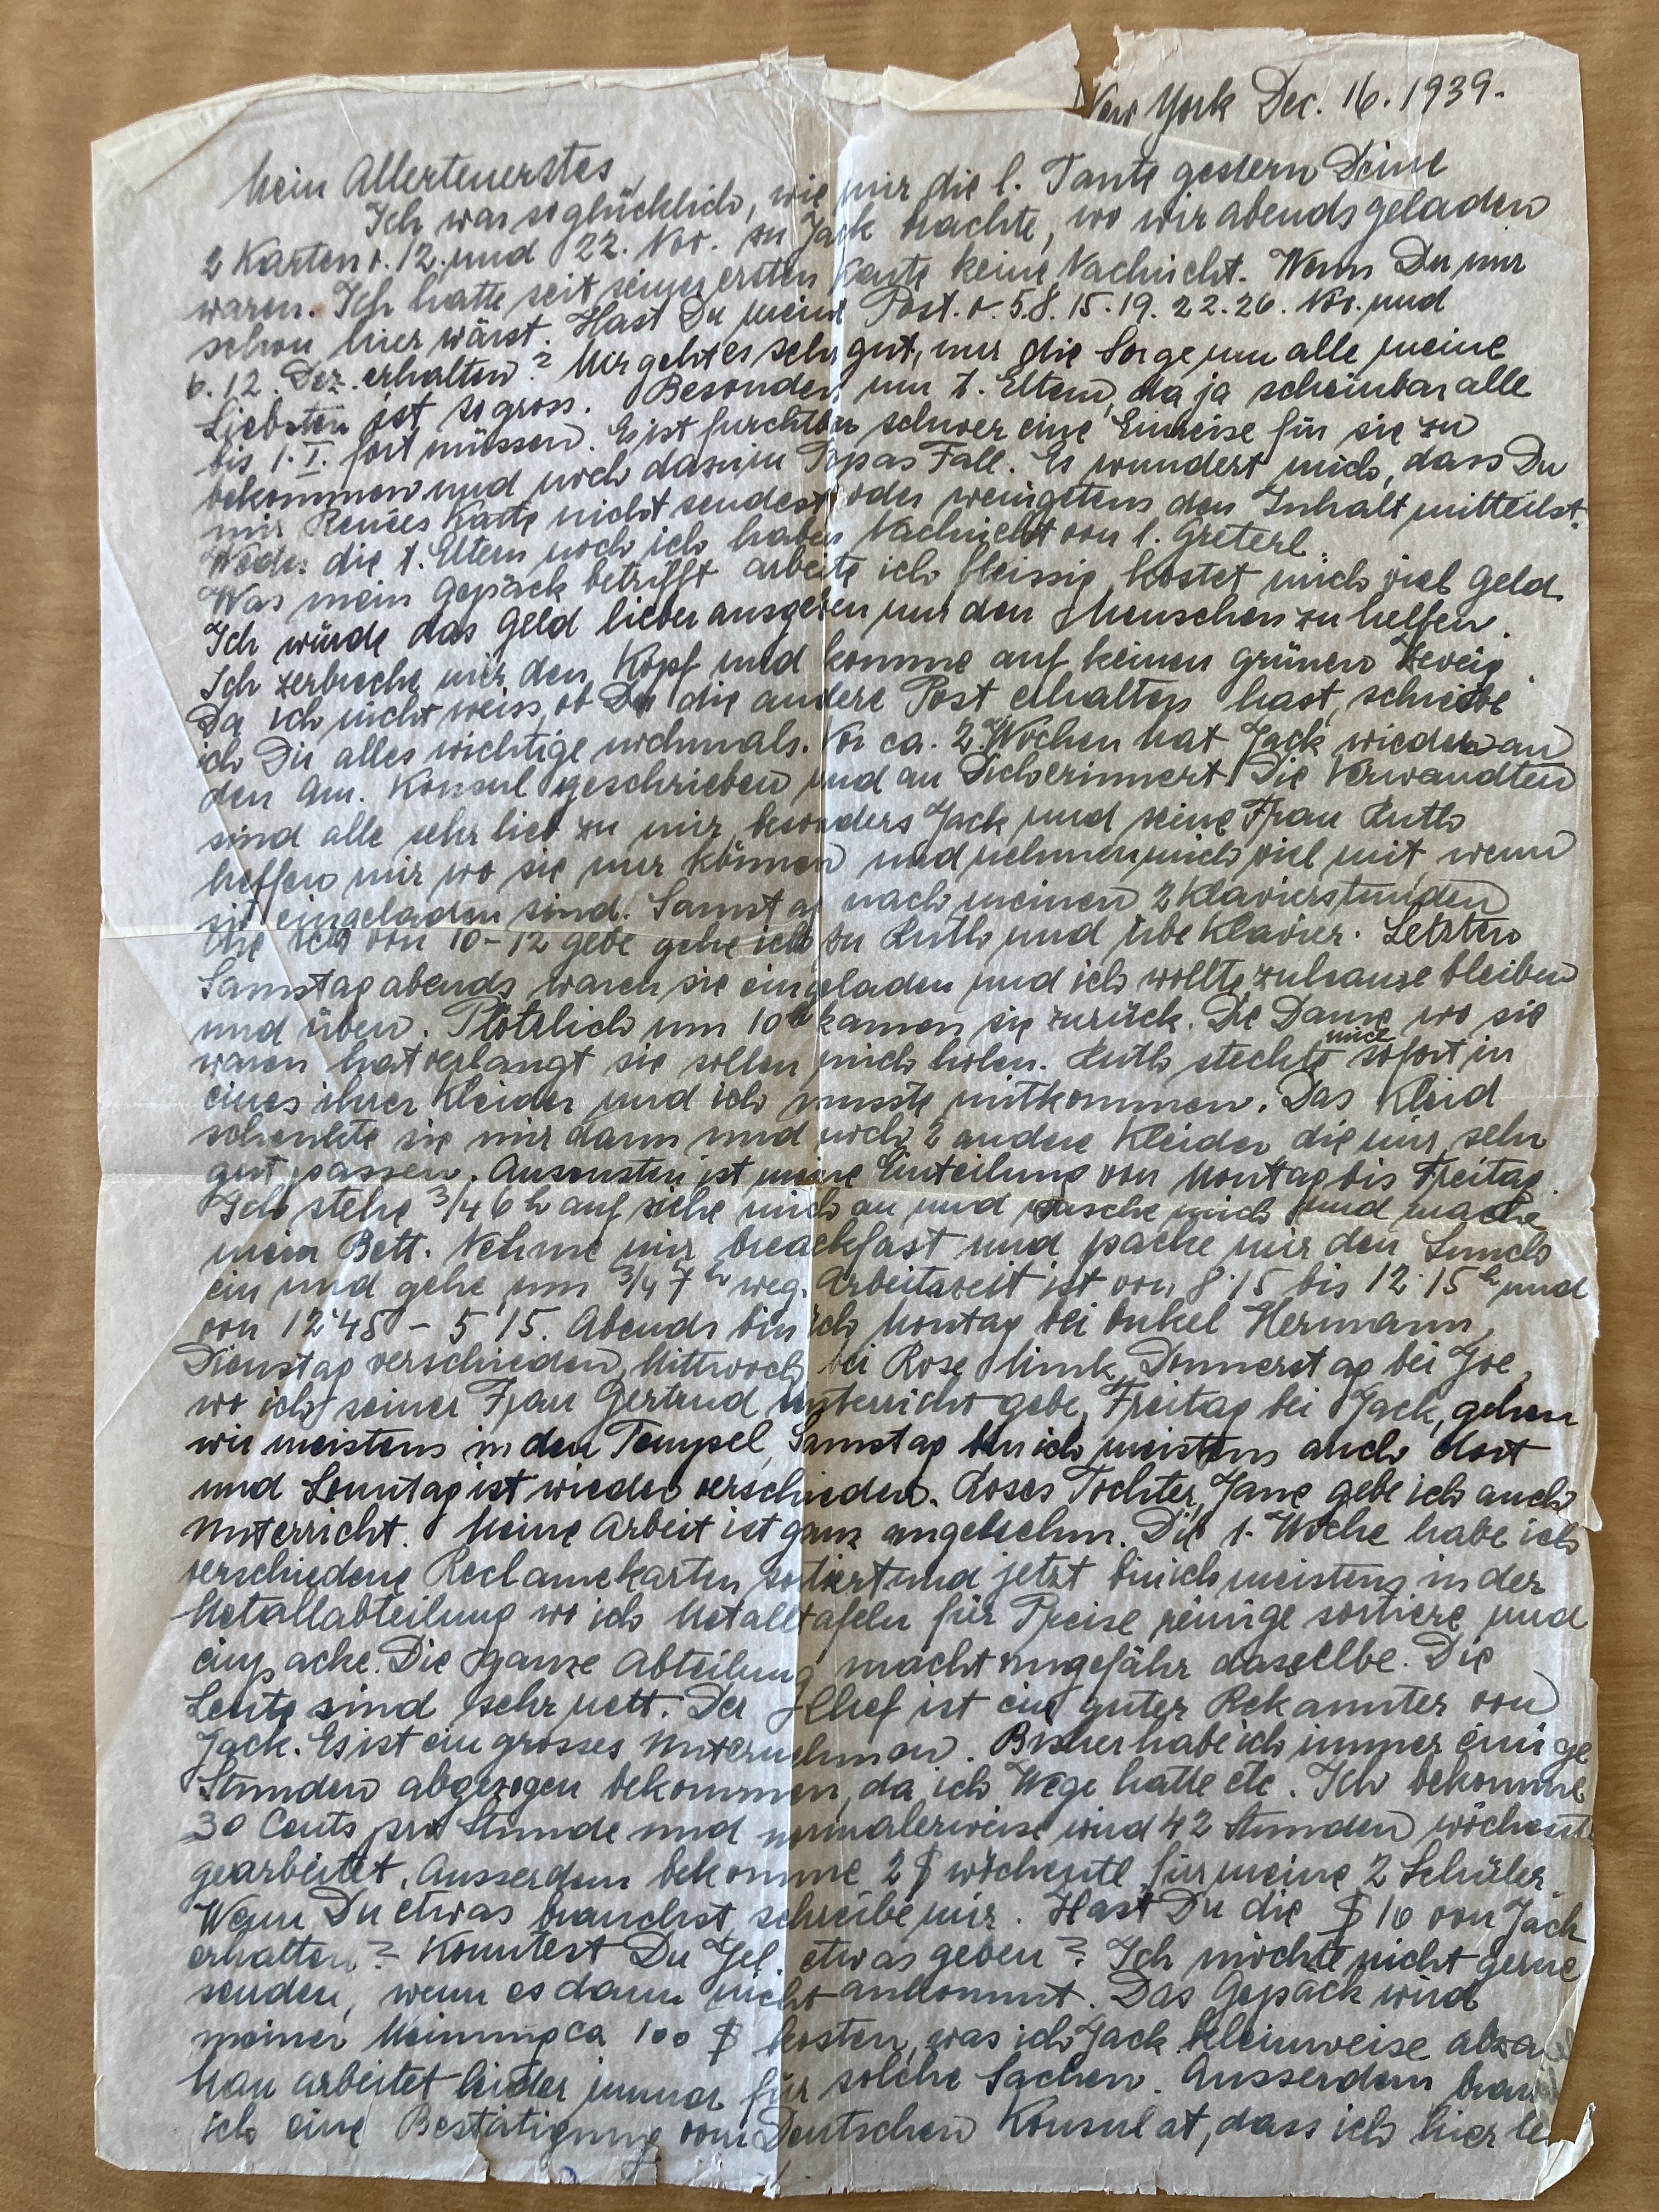 New York Dec. 16. 1939.
Mein Allerteuerstes,
Ich war so glücklich, wie mir die l. Tante gestern Deine
2 Karten v. 12. und 22. Nov. zu Jack brachte, wo wir abends geladen
waren. Ich hatte seit seiner ersten Karte keine Nachricht. Wenn Du nur
schon hier wärst. Hast Du meine Post. v. 5.8. 15. 19. 22. 26. Nov. und
6. 12. Dez. erhalten? Mir geht es sehr gut, nur die Sorge um alle meine
Liebsten ist so gross. Besonders um l. Eltern, da ja scheinbar alle
bis 1. I. fort müssen. Es ist furchtbar schwer eine Einreise für sie zu
bekommen und noch dazu in Papas Fall. Es wundert mich, dass Du
mir Renées Karte nicht sendest oder wenigstens den Inhalt mitteilst.
Weder die l. Eltern noch ich haben Nachricht von l. Greterl.
Was mein Gepäck betrifft arbeite ich fleissig, kostet mich viel Geld.
Ich würde das Geld lieber ausgeben um den Menschen zu helfen.
Ich zerbreche mir den Kopf und komme auf keinen grünen Zweig.
Da ich nicht weiss, ob Du die andere Post erhalten hast, schreibe
ich Dir alles wichtige nochmals. Vor ca. 2 Wochen hat Jack wieder an
den Am. Konsul geschrieben und an Dich erinnert. Die Verwandten
sind alle sehr lieb zu mir, besonders Jack und seine Frau Ruth
helfen mir wo sie nur können und nehmen mich viel mit wenn
sie eingeladen sind. Samstag nach meinen 2 Klavierstunden
die ich von 10-12 gebe gehe ich zu Ruth und übe Klavier. Letzten
Samstag abends waren sie eingeladen und ich wollte zuhause bleiben
und üben. Plötzlich um 10h kamen sie zurück. Die Dame wo sie
waren hat verlangt sie sollen mich holen. Ruth steckte mich sofort in
eines ihrer Kleider und ich musste mitkommen. Das Kleid
schenkte sie mir dann und noch 2 andere Kleider die mir sehr
gut passen. Ausonsten ist meine Einteilung von Montag bis Freitag.
Ich stehe 3/4 6 h auf ziehe mich an und wasche mich und mache
mein Bett. Nehme mir breackfast und packe mir den Lunch
ein und gehe um 3/4 7 h weg. Arbeitszeit ist von 8.15 bis 12.15h und
von 12.45 - 5.15. Abends bin ich Montag bei Onkel Hermann,
Dienstag verschieden, Mittwoch bei Rose Mink, Donnerstag bei Joe,
wo ich seiner Frau Gertrud Unterricht gebe, Freitag bei Jack, gehen
wir meistens in den Tempel, Samstag bin ich meistens auch dort
und Sonntag ist wieder verschieden. Roses Tochter, Jane gebe ich auch
Unterricht. Meine Arbeit ist ganz angenehm. Die 1. Woche habe ich
verschiedene Reclamekarten sortiert und jetzt bin ich meistens in der
Metallabteilung wo ich Metalltafeln für Preise reinige sortiere und
einpacke. Die ganze Abteilung macht ungefähr dasselbe. Die
Leute sind sehr nett. Der Chef ist ein guter Bekannter von
Jack. Es ist ein grosses Unternehmen. Bisher habe ich immer einige
Stunden abgezogen bekommen, da ich Wege hatte etc. Ich bekomme
30 Cents pro Stunde und normalerweise wird 42 Stunden wöchentl
gearbeitet. Ausserdem bekomme 2 $ wöchentl. für meine 2 Schüler.
Wenn Du etwas brauchst, schreibe mir. Hast Du die $ 10 von Jack
erhalten? Konntest Du Gel. etwas geben? Ich möchte nicht gerne
senden, wenn es dann nicht ankommt. Das Gepäck wird
meiner Meinung ca 100 $ kosten, was ich Jack kleinweise abza
Man arbeitet leider immer für solche Sachen. Ausserdem brau
ich eine Bestätigung vom Deutschen Konsulat, dass ich hier le